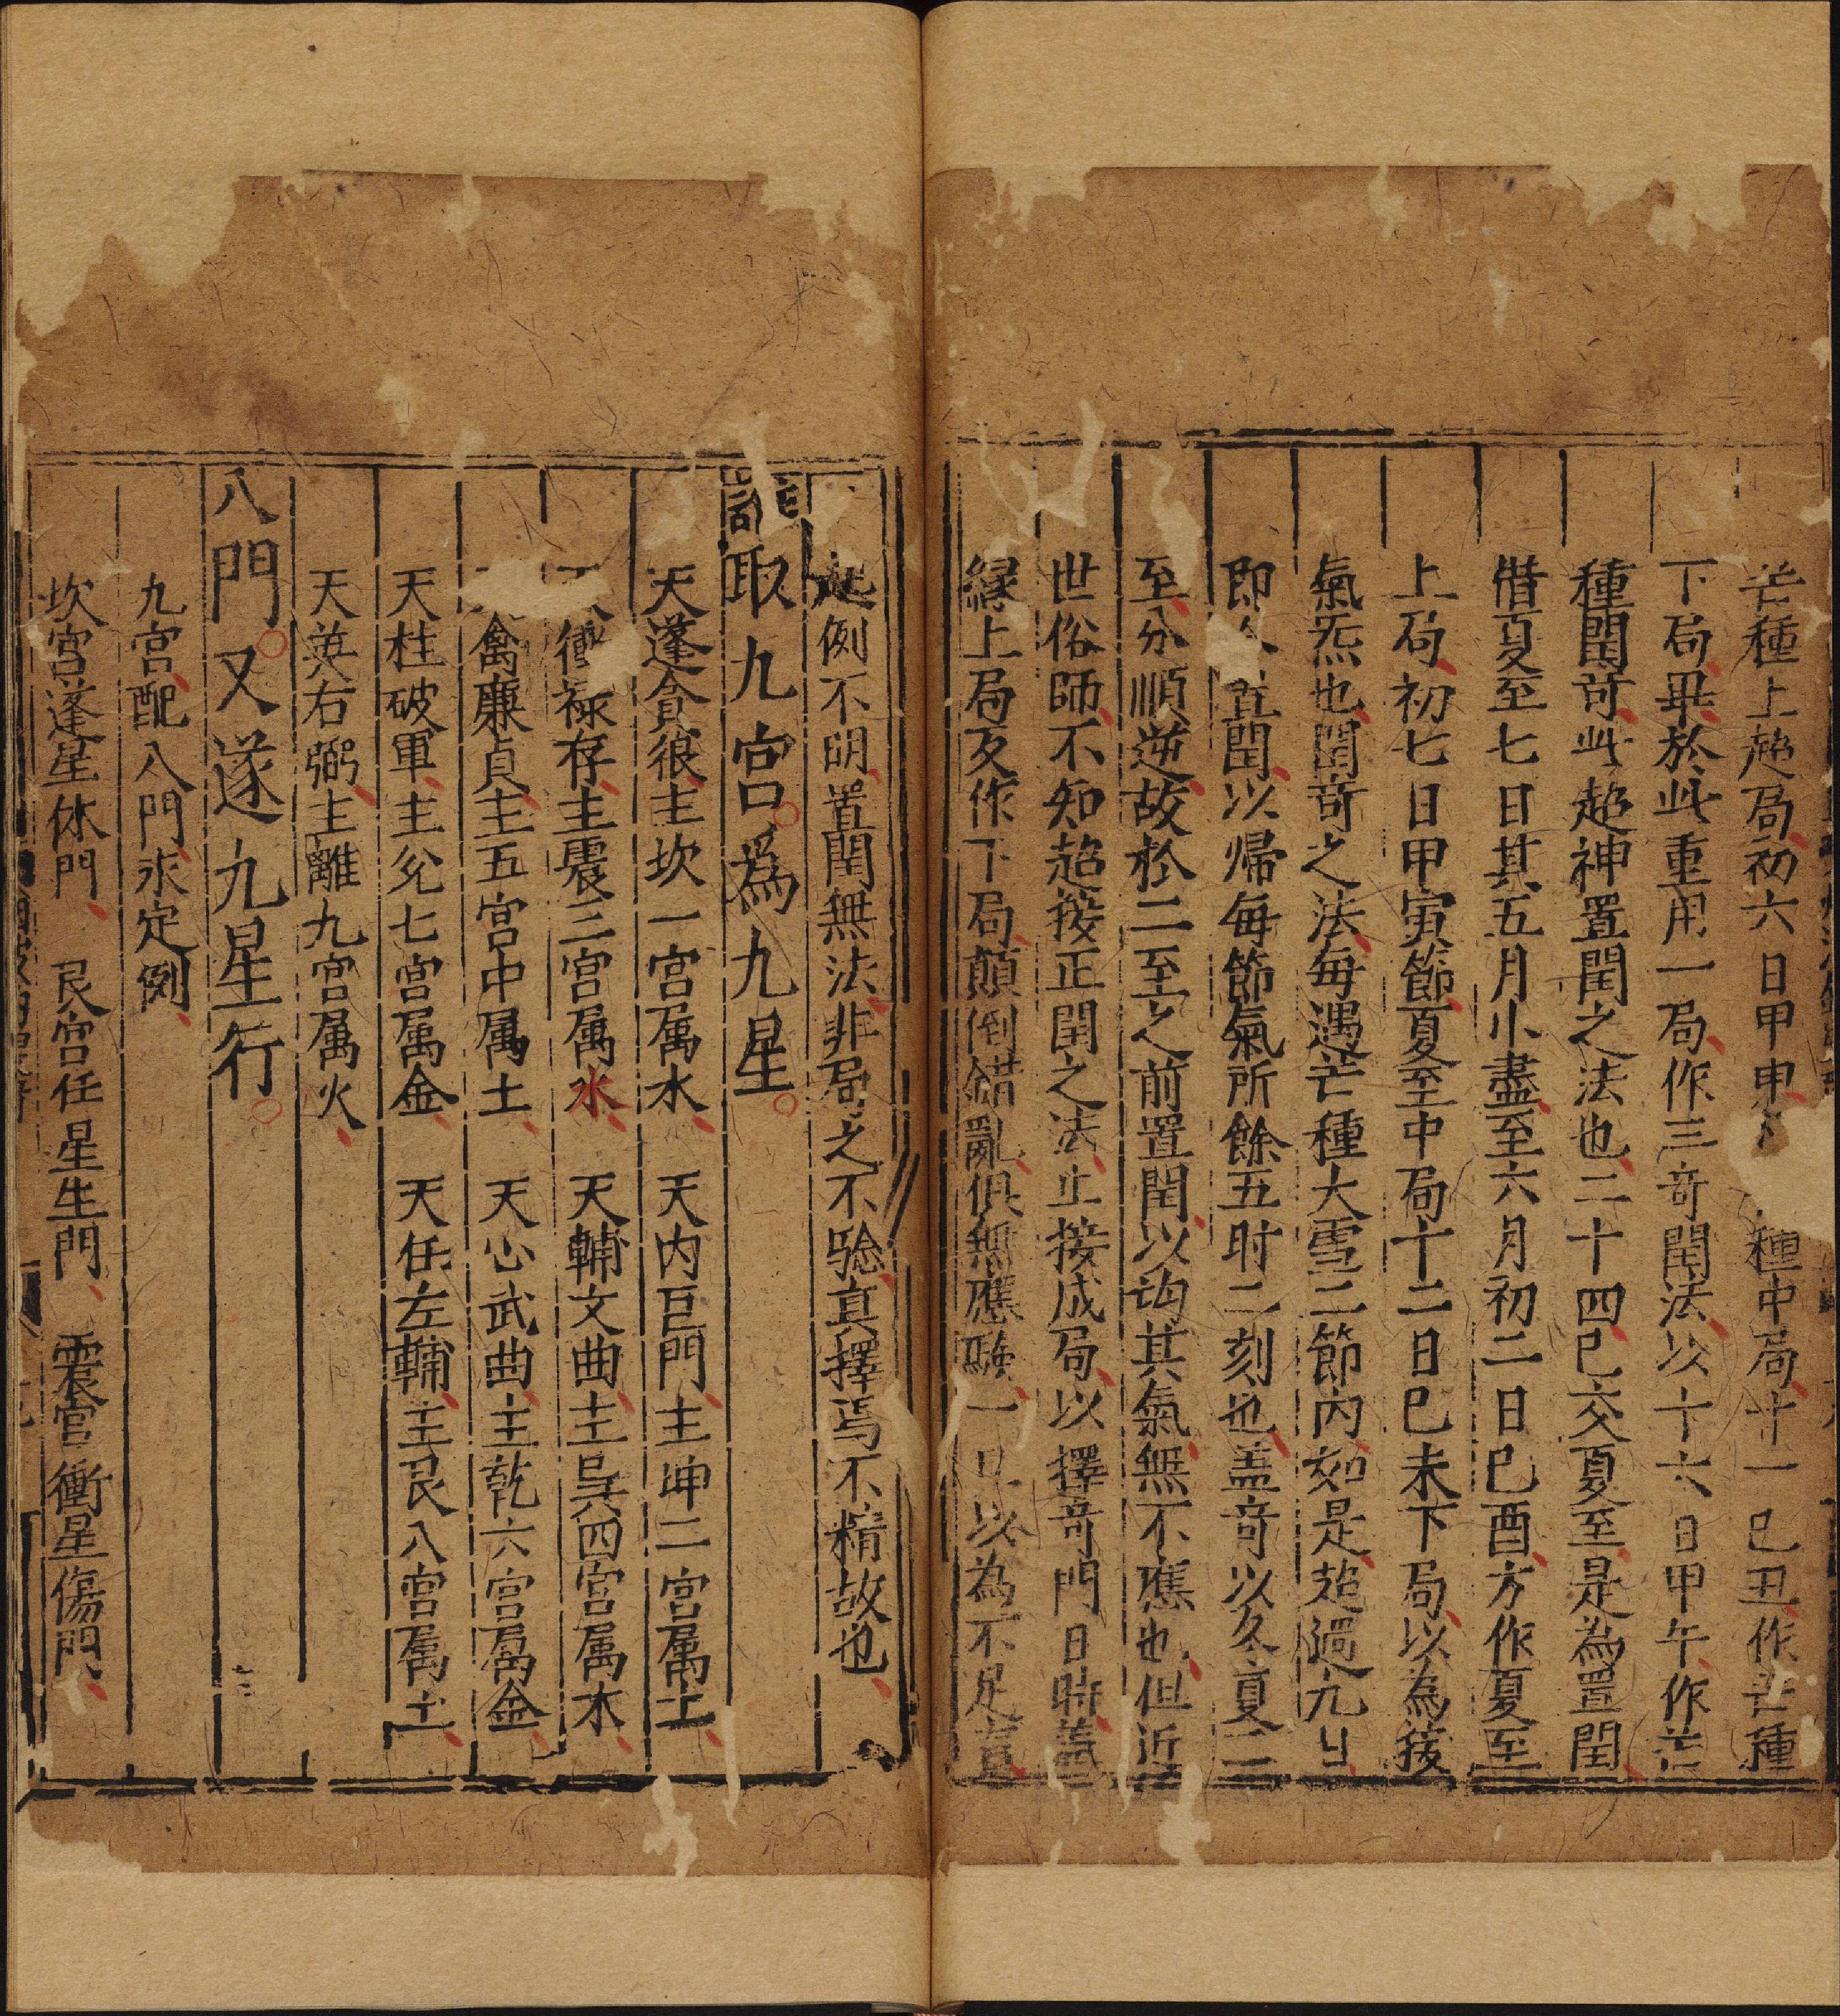 芒種上超局初六日甲申種中局十一己丑作芒種
下局畢於此重用一局作三奇閏法以十六日甲午作芒
種閏奇此超神置閏之法也二十四巳交夏至是為置閏
借夏至七日其五月小盡至六月初二日己酉方作夏至
上局初七日甲寅節夏至中局十二日己未下局以為接
氣炁也閏奇之法每遇芒種大雪二節內如是超過九日
即置閏以帰每節氣所餘五时二刻也盖竒以冬夏二
至分順逆故於二至之前置閏以均其氣無不應也但近
世俗師不知超接正閏之法止接成局以擇竒門日時蓋
縁上局反作下局顛倒錯亂俱無應驗一以為不足責
起例不明置閏無法非局之不驗真擇焉不精故也
認取九宫為九星
天蓬貪狼主坎一宫属水 天内巨門主坤二宫属土
衝禄存主震三宫属水 天輔文曲主巽四宫属木
禽廉貞主五宫中属土 天心武曲主乾六宫属金
天柱破軍主兊七宫属金 天任左輔主艮八宫属土
天英右弼主離九宫属火
八門又遂九星行
九宫配八門永定例
坎宫蓬星休門 艮宫任星生門 震宫衝星傷門